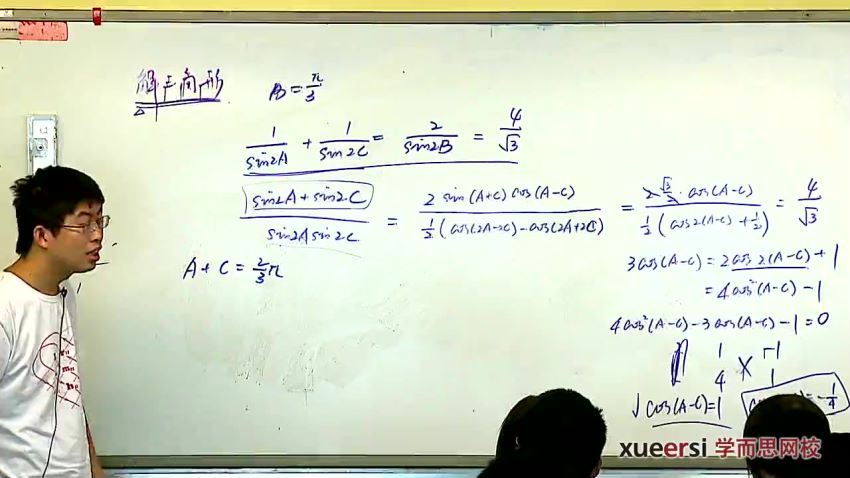 解三角形
B = π/3
1/sin2A + 1/sin2C = 2/sin2B = 4/√3
(sin2A + sin2C)/(sin2A sin2C) = (2 sin(A+C) cos(A-C))/(1/2(cos(2A-2C) - cos(2A+2C))) = (2·√3/2·cos(A-C))/(1/2(cos2(A-C) + 1/2)) = 4/√3
A + C = 2/3π
3cos(A-C) = 2cos2(A-C) + 1
= 4cos²(A-C) - 1
4cos²(A-C) - 3cos(A-C) - 1 = 0
1 -1
4 1
√ cos(A-C) = 1
= -1/4
xueersi 学而思网校